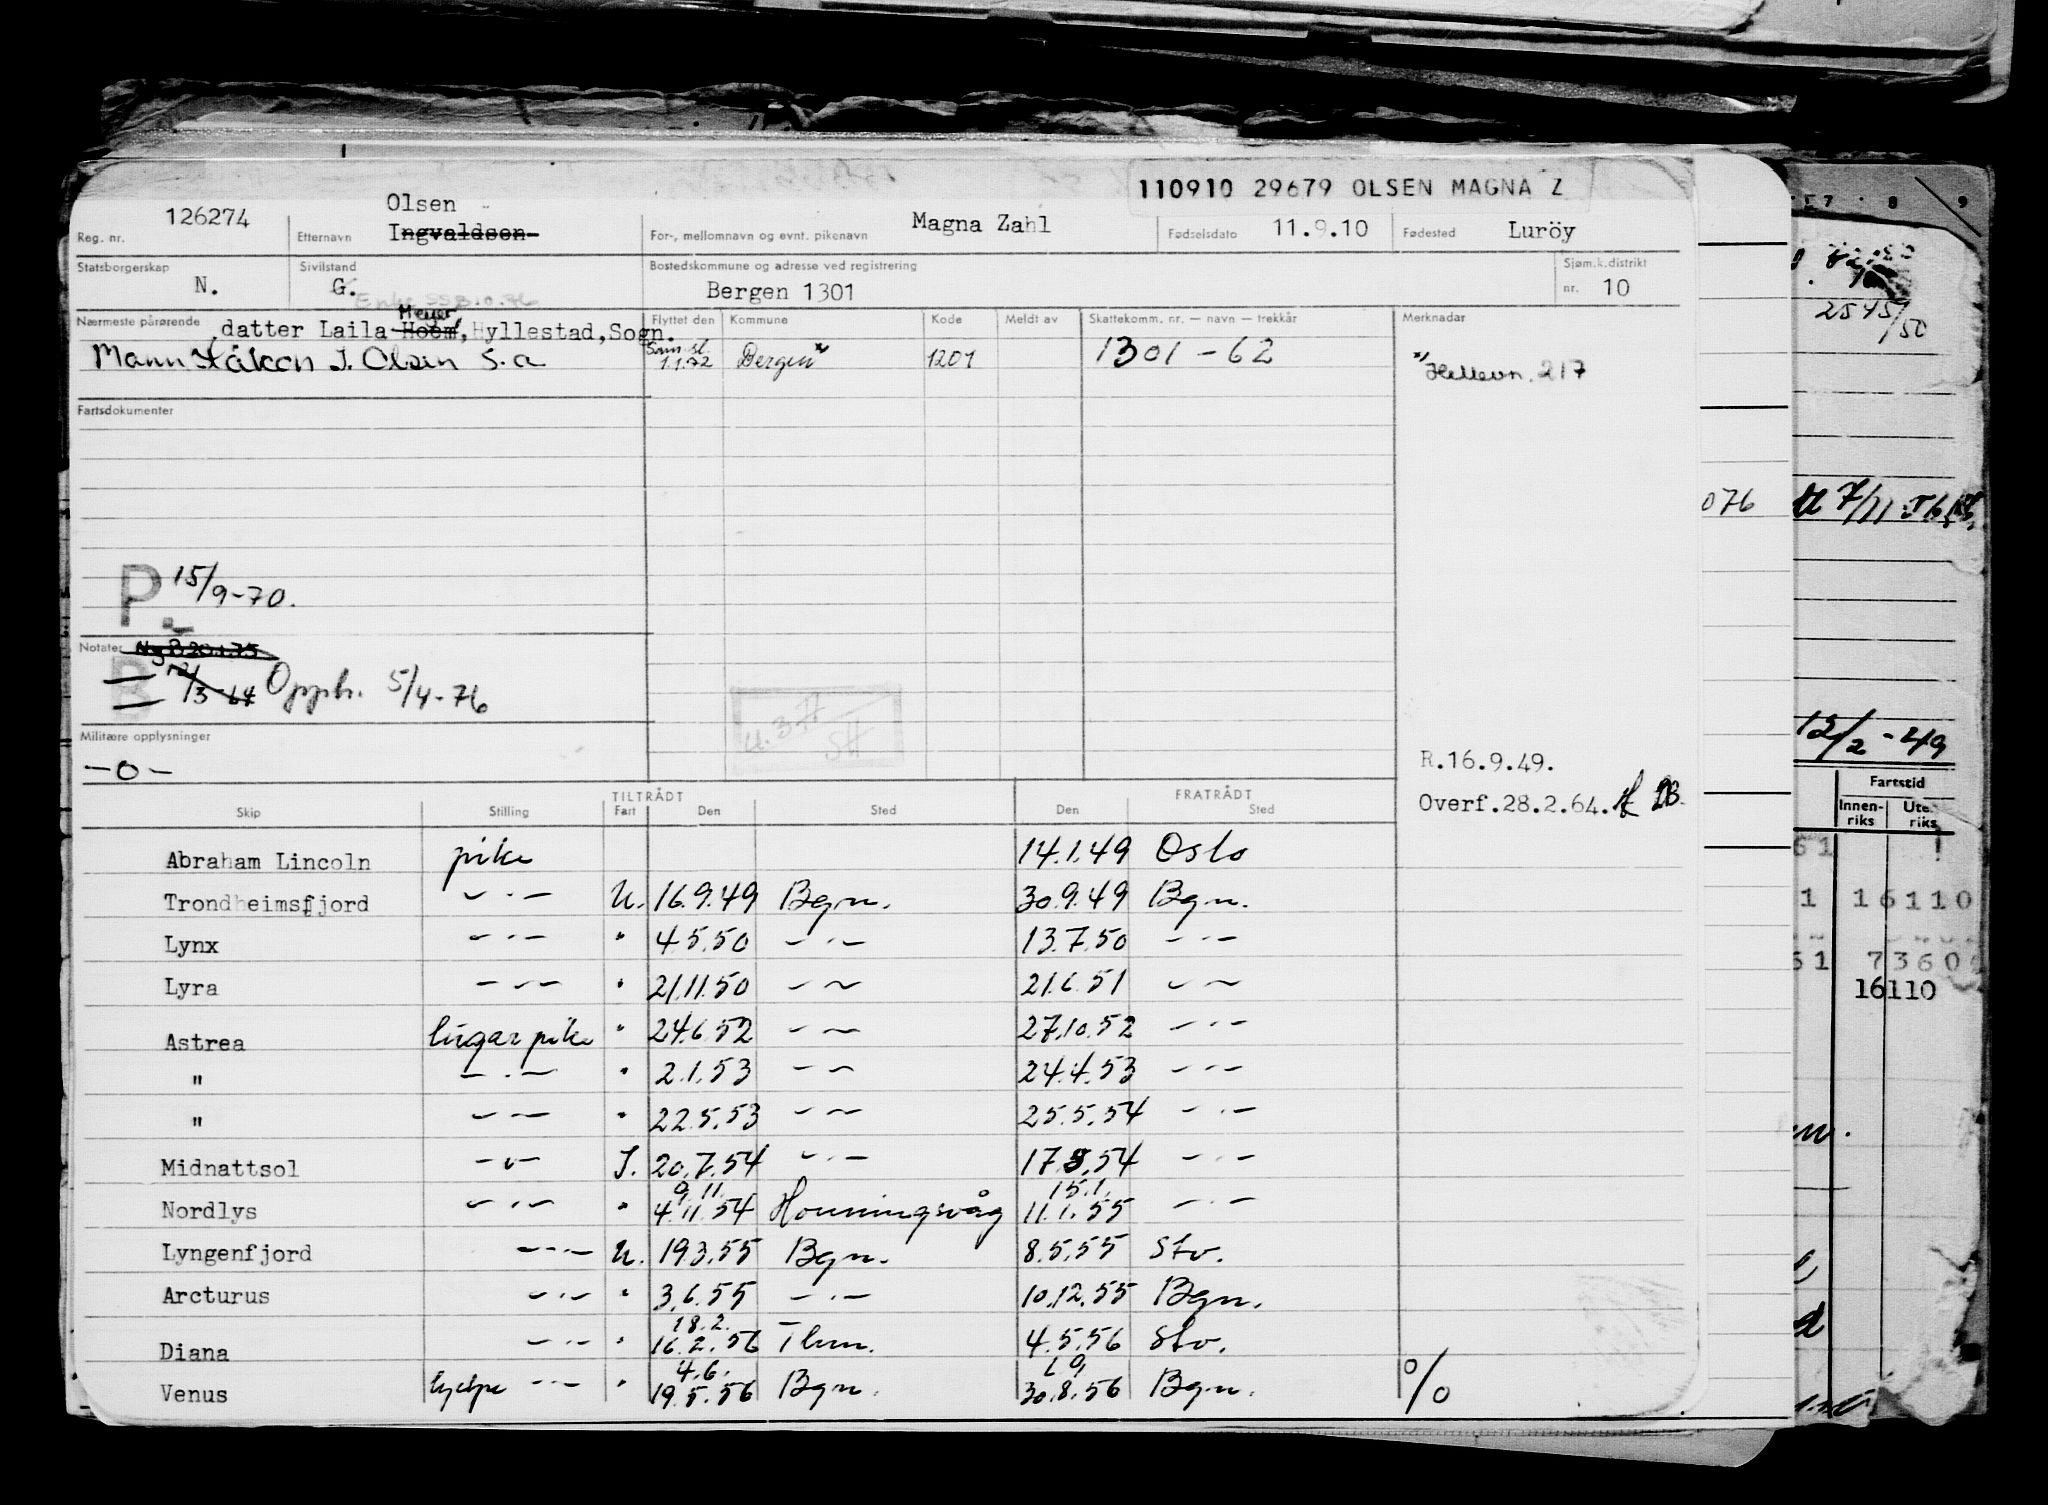 110910 29679 OLSEN MAGNA Z
Reg. nr. 126274 Etternavn Olsen Ingvaldsen For-, mellomnavn og evnt. pikenavn Magna Zahl Fødselsdato 11.9.10 Fødested Luröy
Statsborgerskap N. Sivilstand G. Bostedskommune og adresse ved registrering Bergen 1301 Sjøm.k.distrikt nr. 10
Nærmeste pårørende , datter Laila Hoem Meyer, Hyllestad, Sogn.
Mann Håkon J. Olsen S.a
Flyttet den Kommune Kode Meldt av Skattekomm. nr. — navn — trekkår Merknader
1.1.72 Bergen 1201 1301 - 62 217
Fartsdokumenter
P 15/9-70.
Notater
B 12/3-64 Opph. 5/4-76
Militære opplysninger
-0-
R.16.9.49.
Overf.28.2.64.
TILTRÅDT FRATRÅDT
Skip Stilling Fart Den Sted Den Sted
Abraham Lincoln pike 14.1.49 Oslo
Trondheimsfjord — · — U. 16.9.49 Bgn. 30.9.49 Bgn.
Lynx — · — " 4.5.50 — · — 13.7.50 — · —
Lyra — · — " 21.11.50 — · — 21.6.51 — · —
Astrea lugarpike " 24.6.52 — · — 27.10.52 — · —
" — · — " 2.1.53 — · — 24.4.53 — · —
" — · — " 22.5.53 — · — 25.5.54 — · —
Midnattsol — · — I. 20.7.54 — · — 17.8.54 — · —
9.11. 15.1.
Nordlys — · — " 4.11.54 Honningsvåg 11.1.55 — · —
Lyngenfjord — · — U. 19.3.55 Bgn. 8.5.55 Stv.
Arcturus — · — " 3.6.55 — · — 10.12.55 Bgn.
18.2.
Diana — · — " 16.2.56 Thm. 4.5.56 Stv.
4.6.
Venus hjelpe — · — " 19.5.56 Bgn. 30.8.56 Bgn. %
7 8 9
2545/50
076
7/11
12/2-49
Fartstid
Innen-riks Ute-riks
61
1 16110
61 7360
16110